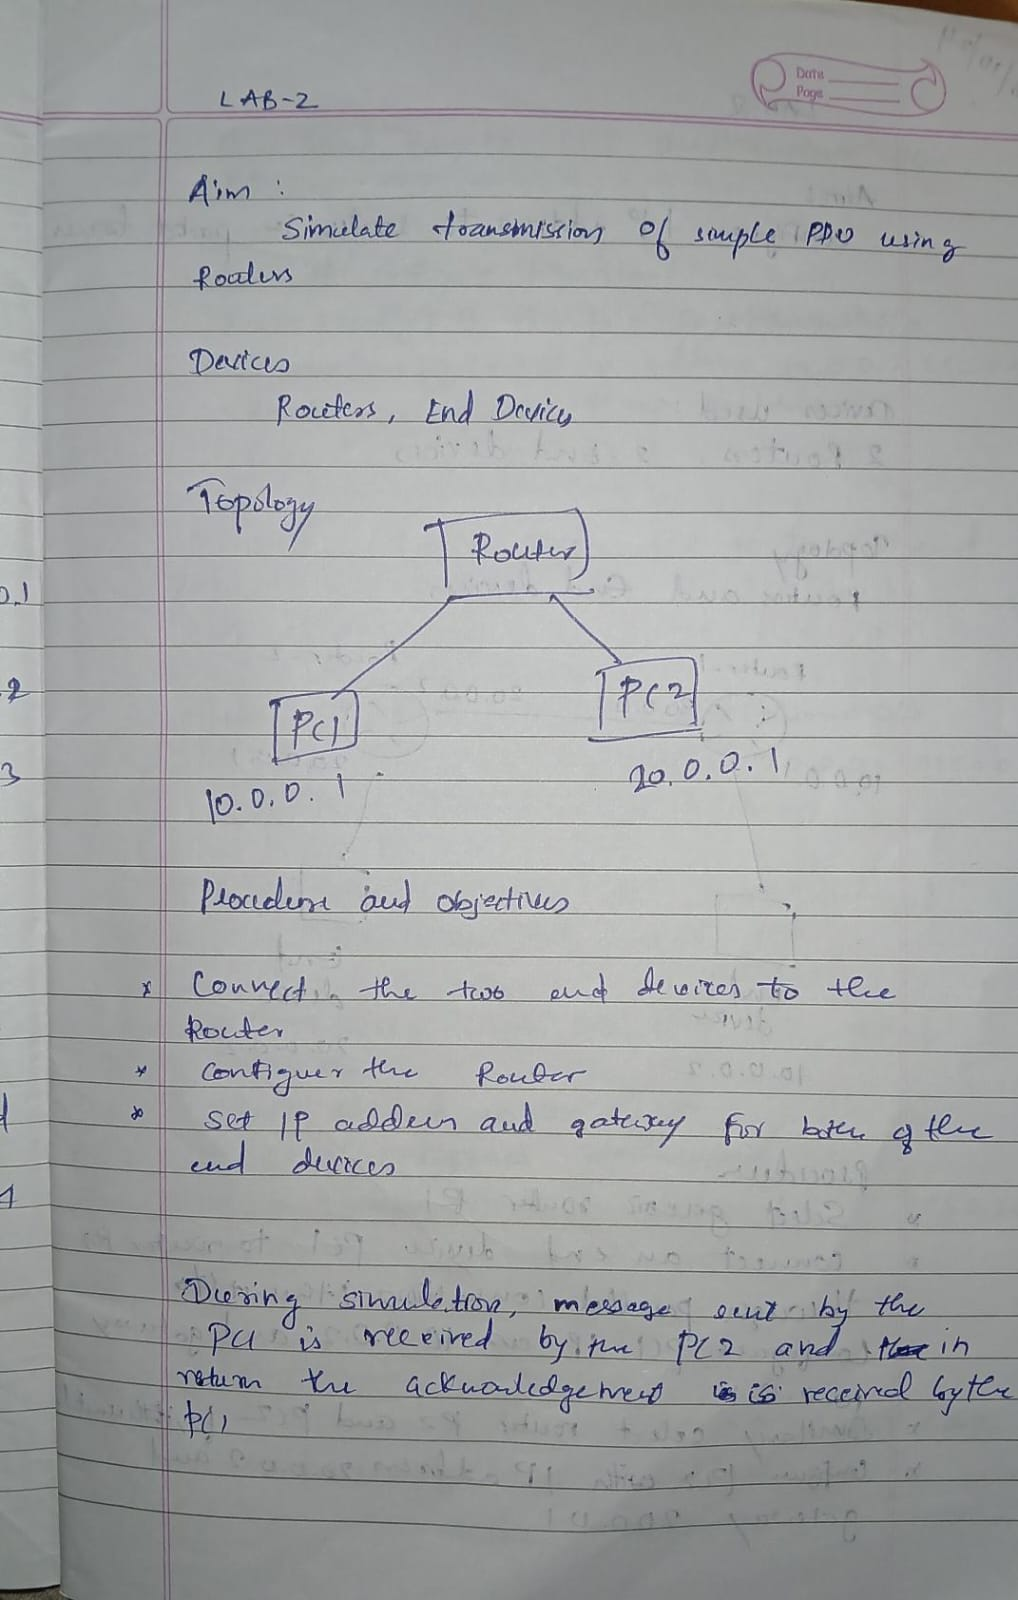 LAB-2
Date
Page
Aim :
Simulate transmission of simple PDU using
Routers
Devices
Routers, End Devices
Topology
Router
PC1
PC2
10.0.0.1
20.0.0.1
Procedure and objectives
* Connect the two end devices to the
Router
* Configuer the Router
* Set IP address and gateway for both of the
end devices
During simulation, message sent by the
PC1 is received by the PC2 and in
return the acknowledgement is received by the
PC1
0.1
2
3